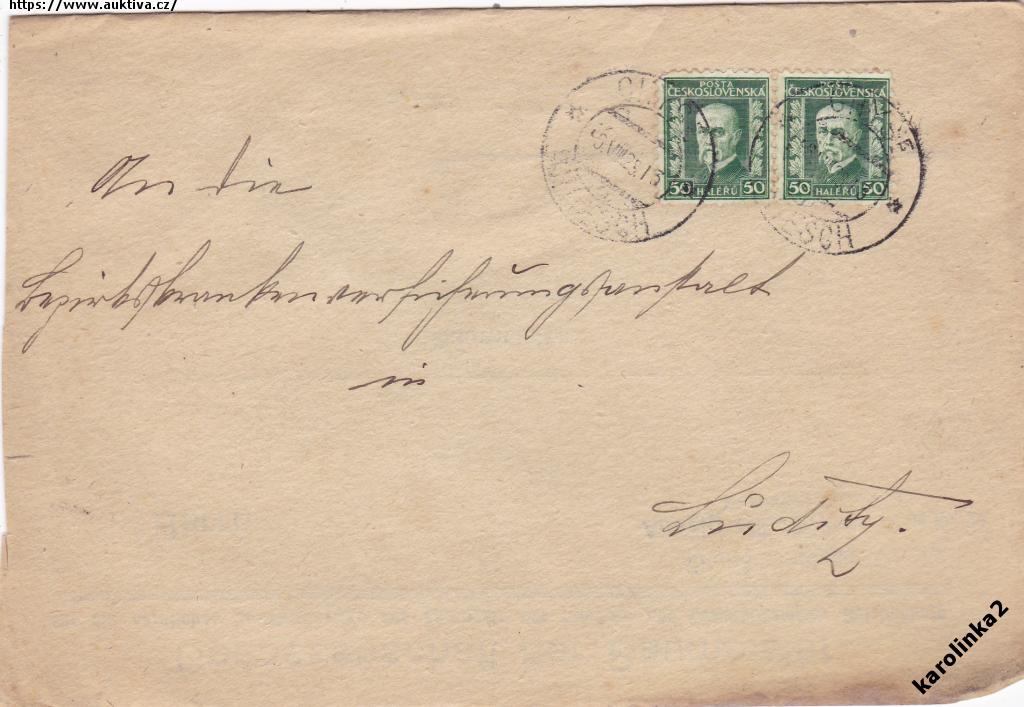 https://www.auktiva.cz/
POSTA
ČESKOSLOVENSKÁ
50 HALÉŘŮ 50
POSTA
ČESKOSLOVENSKÁ
50 HALÉŘŮ 50
An die
Bezirkskrankenversicherungsanstalt
in
Luditz.
karolinka2